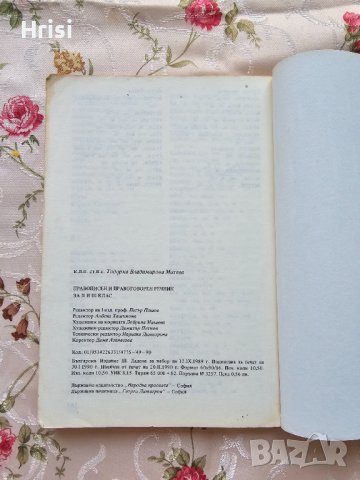 Hrisi
к.п.н. ст.н.с. Тодорка Владимирова
ПРАВОПИСЕН И ПРАВОГОВОРЕН РЕЧНИК
ЗА II И III КЛАС
Редактор на I изд. проф. Петър Пашов
Редактор
Художник на корицата Людмила
Художник-редактор Димитър
Технически редактор Мариана Димитрова
Коректор Дима
Код 01/9534226331/4775–49–90
Българска. Издание III. Дадена за набор на 12.IX.1989 г. Подписана за печат на
30.I.1990 г. Излязла от печат на 20.II.1990 г. Формат 60x90/16. Печ. коли 10,50.
Изд. коли 10,50. УИК 8,15. Тираж 65 000 + 62. Поръчка № 3257. Цена 0,56 лв.
Държавно издателство „Народна просвета" – София
Държавна печатница „Георги Димитров" – София
BAZAR
bg